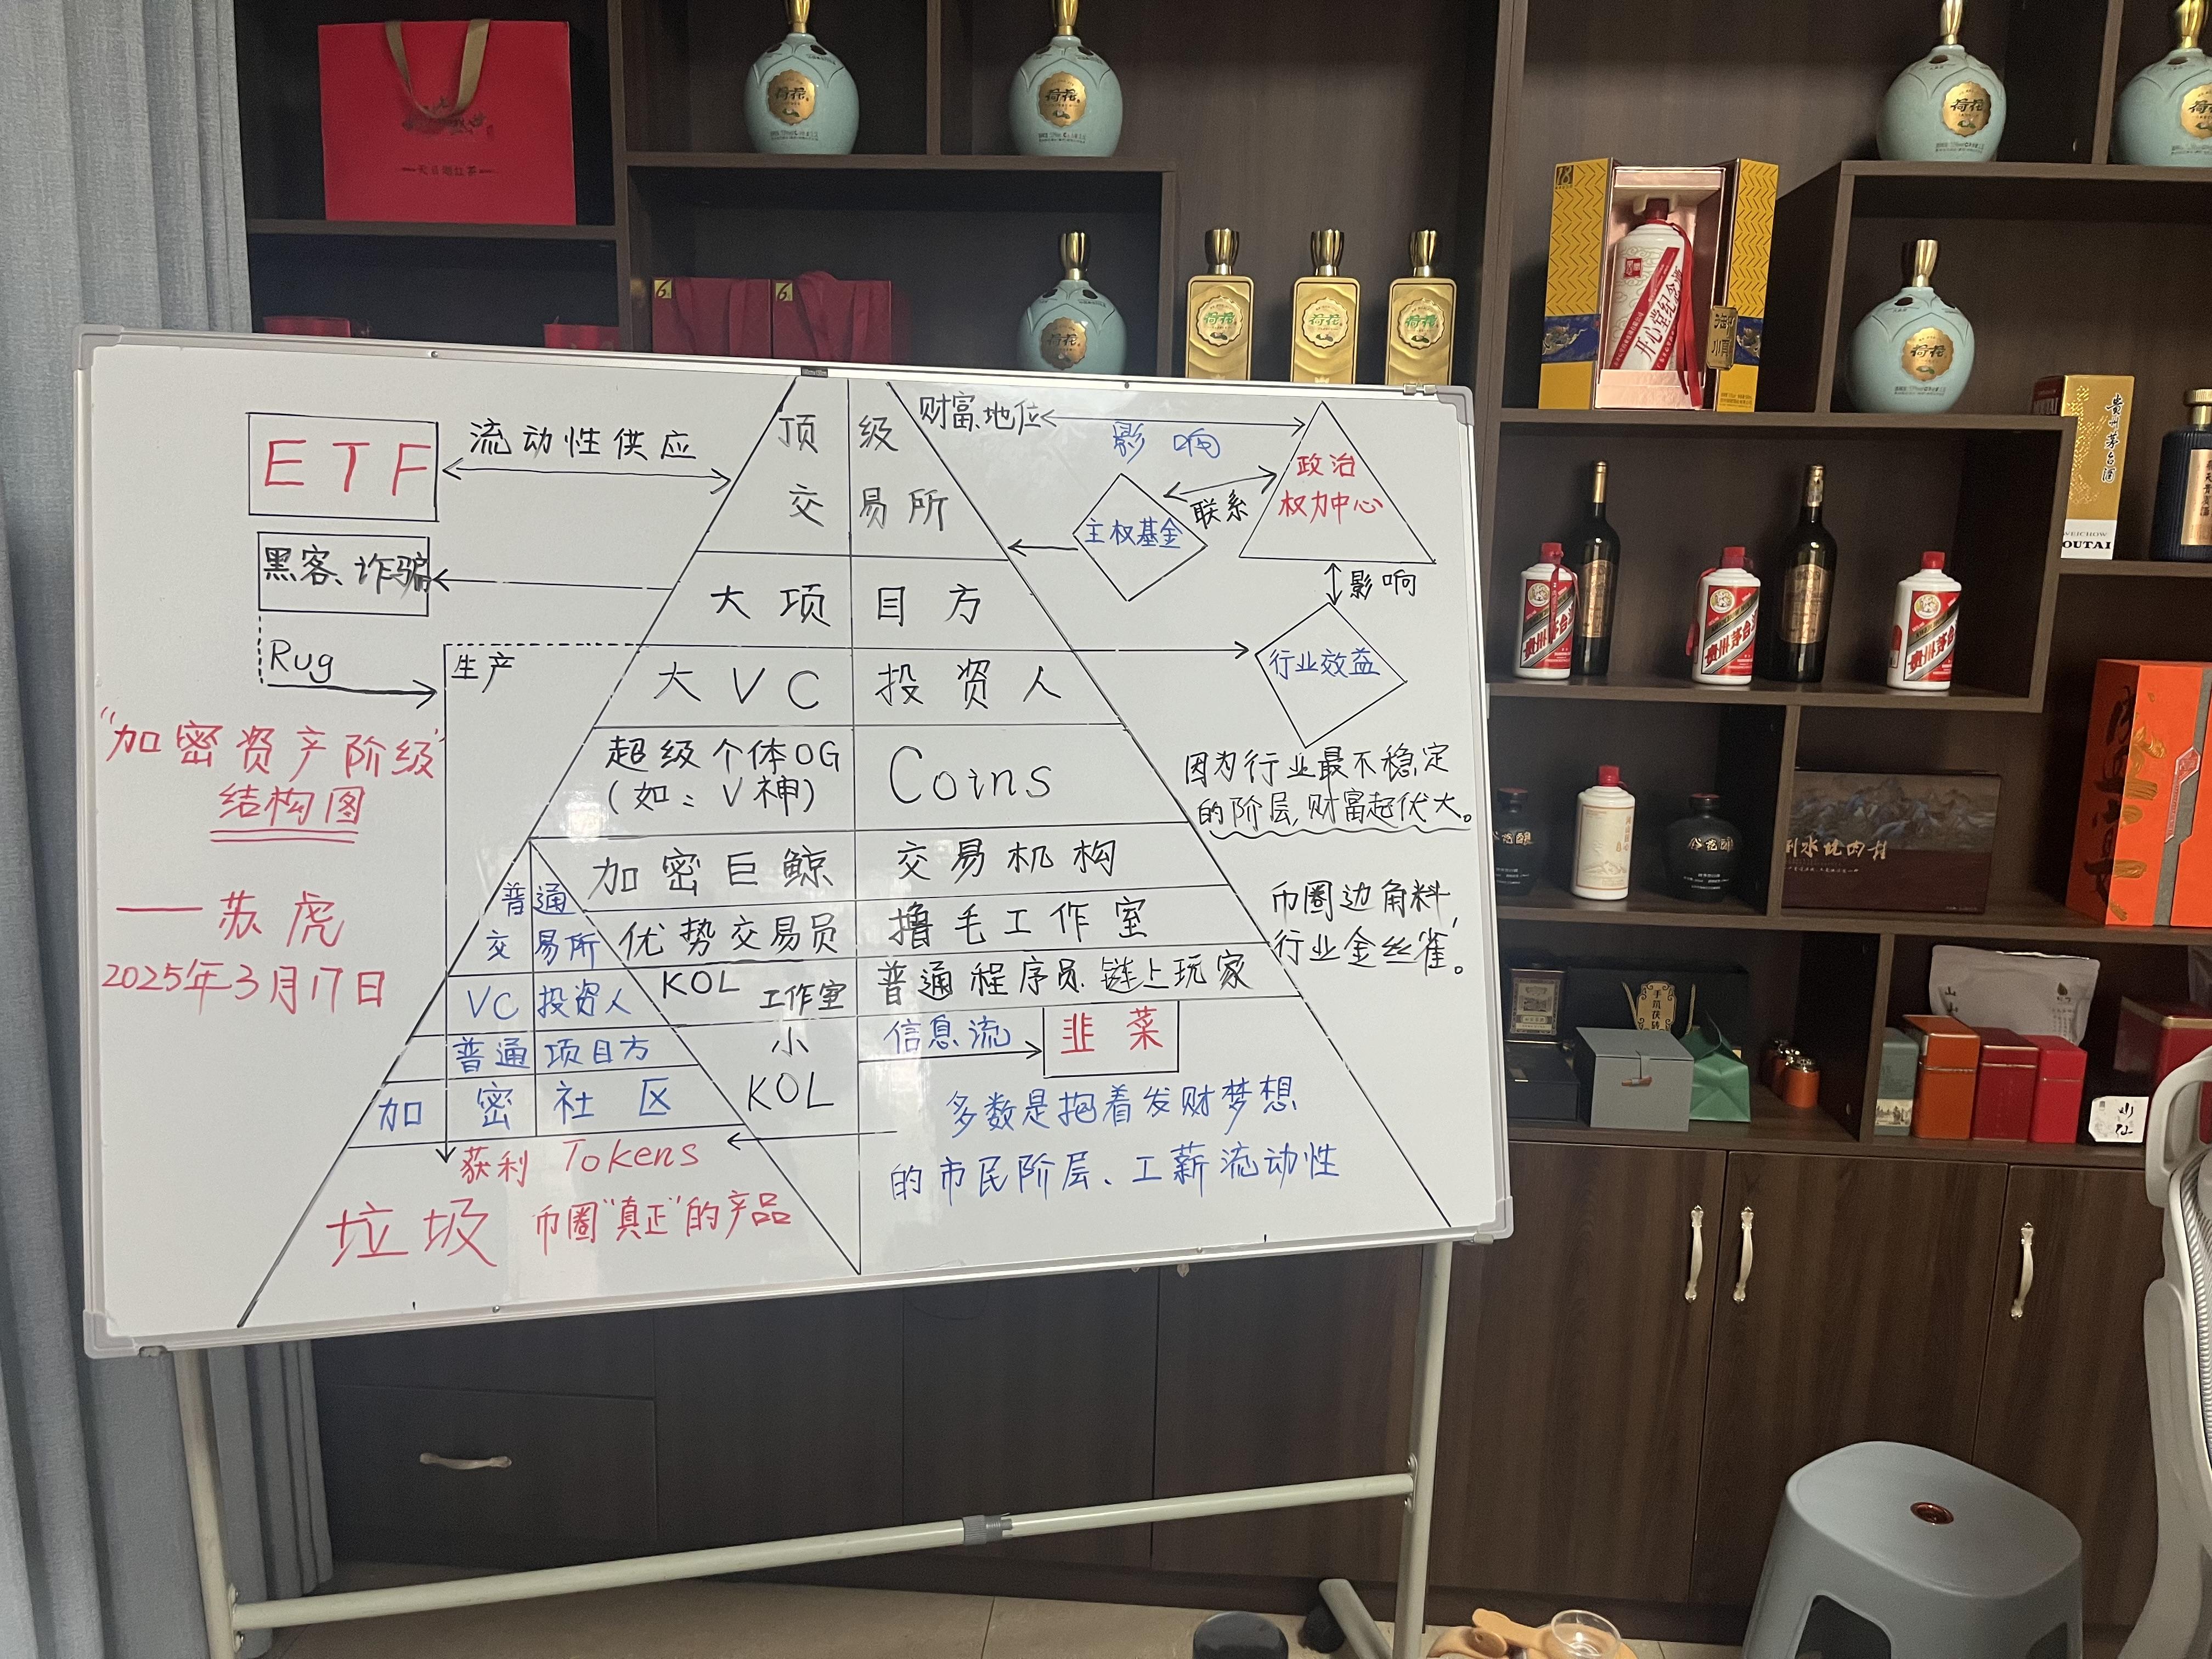 顶级
交易所
财富、地位
影响
ETF
流动性供应
政治
权力中心
联系
主权基金
黑客、诈骗
大项目方
影响
Rug
生产
大VC投资人
行业效益
"加密资产阶级"
结构图
超级个体OG
(如：V神)
Coins
因为行业最不稳定
的阶层,财富起伏大。
加密巨鲸
交易机构
——苏虎
2025年3月17日
普通
交易所
优势交易员
撸毛工作室
币圈边角料
行业金丝雀。
VC投资人
KOL工作室
普通程序员.链上玩家
普通项目方
小
KOL
信息流
韭菜
加密社区
多数是抱着发财梦想
的市民阶层、工薪流动性
获利 Tokens
垃圾 币圈"真正"的产品
荷花
荷花
荷花
荷花
荷花
荷花
荷花
荷花
荷花
开心堂纪念酒
贵州茅台酒
WEICHOW
OUTAI
贵州茅台酒
贵州茅台酒
贵州茅台酒
6
6
山仙